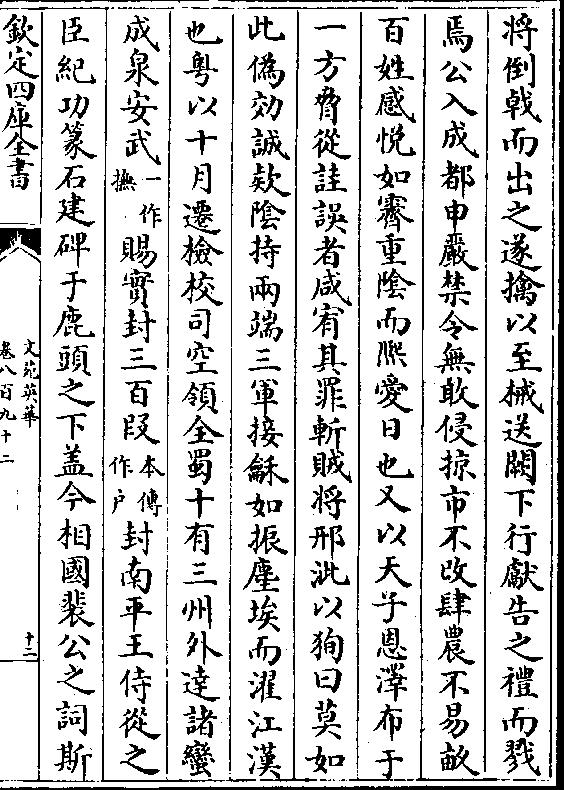 將倒戟而出之遂擒以至械送闕下行獻告之禮而戮
焉公入成都申嚴禁令無敢侵掠市不改肆農不易畝
百姓感悦如霽重陰而熈愛日也又以天子恩澤布于
一方脅從詿誤者咸宥其罪斬賊將邢泚以狥曰莫如
此偽効誠欵陰持兩端三軍接龢如振塵埃而濯江漢
也粤以十月遷檢校司空領全蜀十有三州外達諸蠻
成泉安武一作撫賜實封三百段本傳作户封南平王侍從之
臣紀功篆石建碑于鹿頭之下蓋今相國裴公之詞斯
欽定四庫全書
文苑英華
卷八百九十二
十二